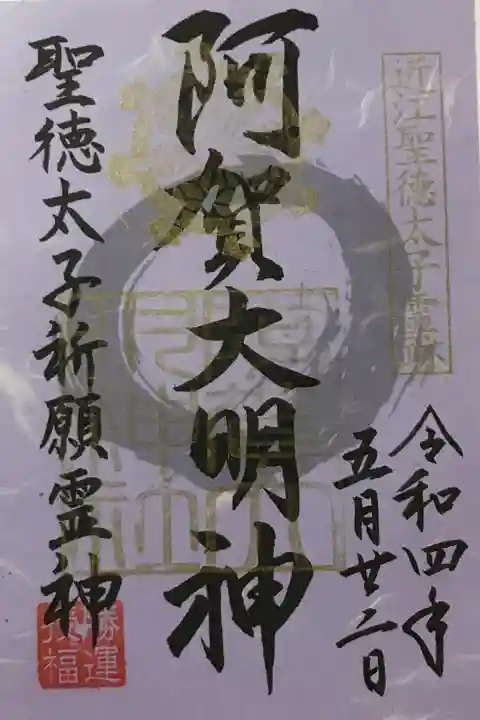 近江聖徳太子霊跡
令和四年
五月廿二日
阿賀大明神
聖徳太子祈願霊神
勝運
授福